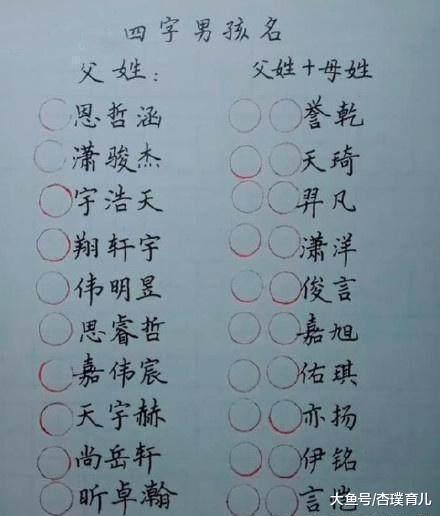 四字男孩名
父姓： 父姓+母姓
恩哲涵 誉乾
潇骏杰 天琦
宇浩天 羿凡
翔轩宇 潇洋
伟明昱 俊言
思睿哲 嘉旭
嘉伟宸 佑琪
天宇赫 亦扬
尚岳轩 伊铭
昕卓瀚 言恺
大鱼号/杏璞育儿